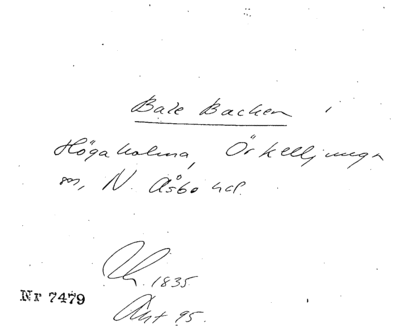 Bale Backen
Högaholma, Örkelljunga
sn, N. Åsbo hd.
Uh. 1835
Nr 7479
Akt 95.